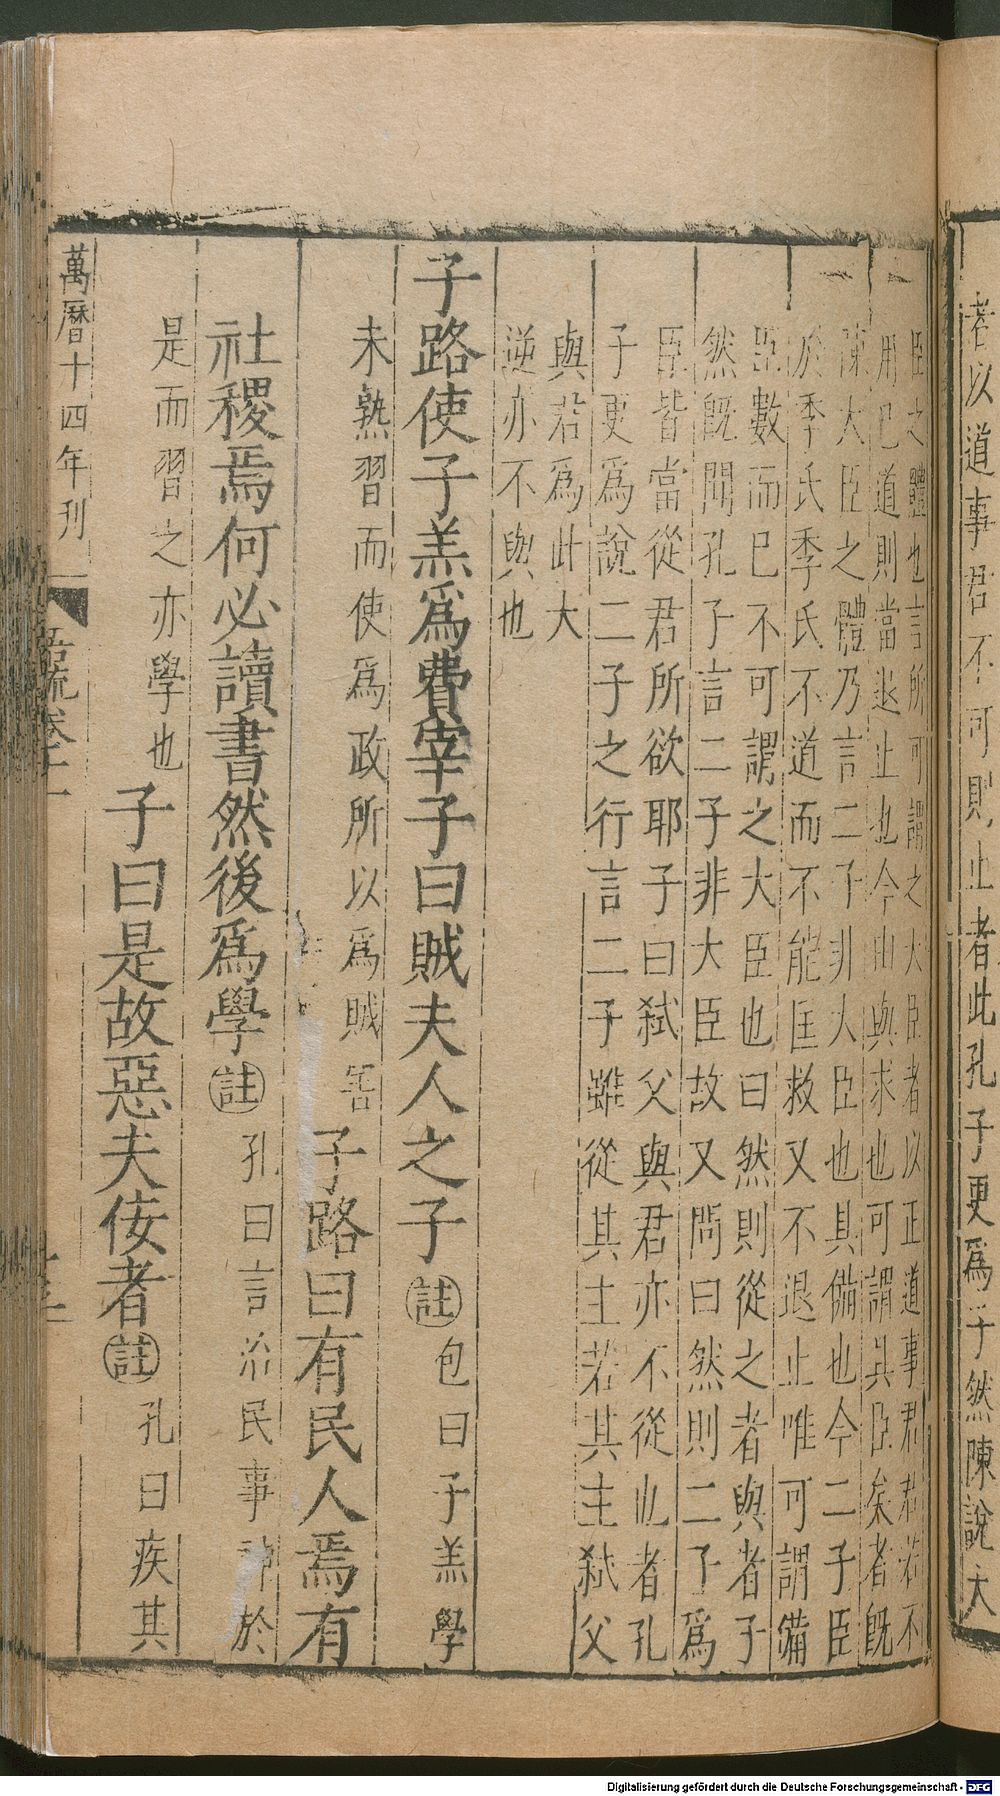 者以道事君不可則止者此孔子更爲子然陳說大
臣之體也言所可謂之大臣者以正道事君君若不
用已道則當退止也今由與求也可謂具臣矣者既
陳大臣之體乃言二子非大臣也具備也今二子臣
於季氏季氏不道而不能匡救又不退止唯可謂備
臣數而已不可謂之大臣也曰然則從之者與者子
然既聞孔子言二子非大臣故又問曰然則二子爲
臣皆當從君所欲耶子曰弑父與君亦不從也者孔
子更爲說二子之行言二子雖從其主若其主弑父
與君爲此大
逆亦不與也
子路使子羔爲費宰子曰賊夫人之子㊟包曰子羔學
未熟習而使爲政所以爲賊害子路曰有民人焉有
社稷焉何必讀書然後爲學㊟孔曰言治民事神於
是而習之亦學也子曰是故惡夫佞者㊟孔曰疾其
萬曆十四年刊 語疏卷十一
Digitalisierung gefördert durch die Deutsche Forschungsgemeinschaft - DFG